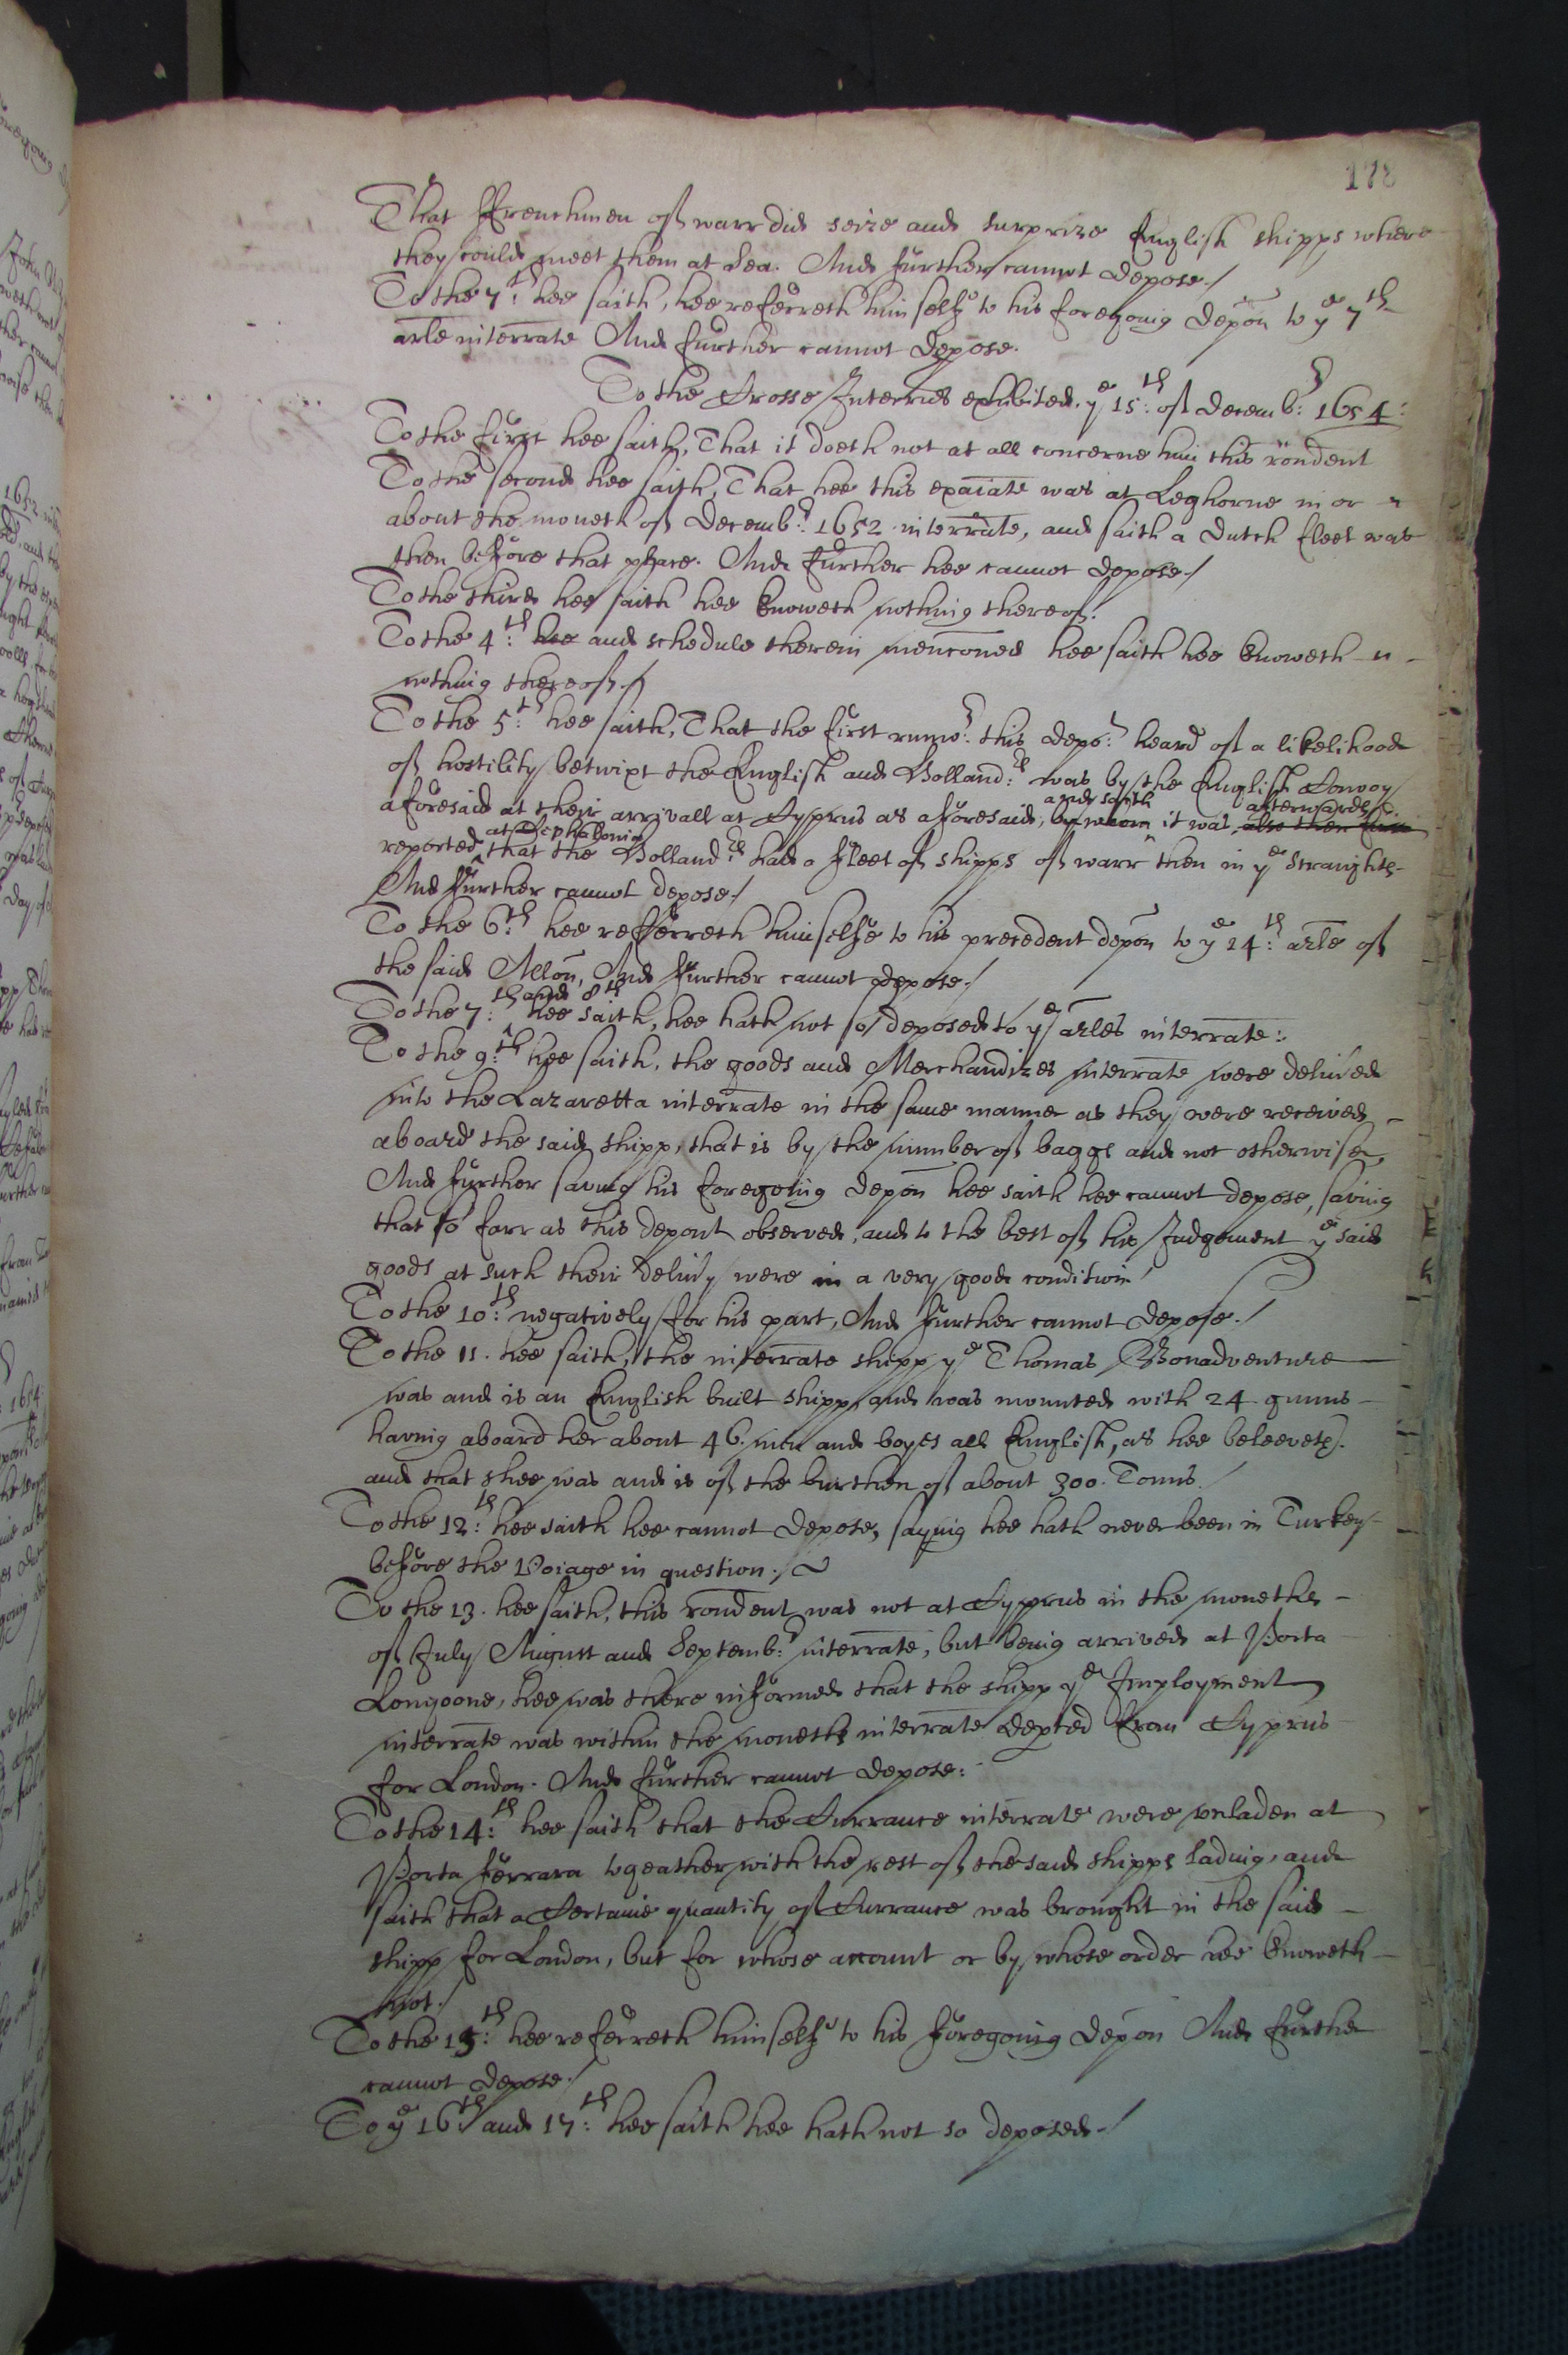 178
That Frenchmen of warr did seize and surprize English shipps where
they could meet them at Sea. And further cannot depose./
To the 7:th hee saith, hee referreth himselfe to his foregoing depon to ye 7th
arle interrate And further cannot depose.
To the Crosse Interries exhibited ye 15:th of Decemb:r 1654:
To the first hee saith, That it doeth not at all concerne him this rondent
To the second hee saith, That hee this exaiate was at Leghorne in or
about the moneth of Decemb:r 1652 interrate, and saith a Dutch fleet was
then before that place. And further hee cannot depose./
To the third hee saith hee knoweth nothing thereof.
To the 4:th hee and schedule therein menconed hee saith hee knoweth
nothing thereof./
To the 5:th hee saith, That the first rumo:r this depo:t heard of a likelihood
of hostility betwixt the English and Holland:rs was by the English Convoy
aforesaid at their arrivall at Cyprus as aforesaid, by whom and saith it was also then afterwards
reported at Cephalonia that the Holland:rs had a fleet of shipps of warr then in ye Straights
And further cannot depose./
To the 6:th hee referreth himselfe to his precedent depon to ye 14:th arle of
the said Allon, And further cannot depose./
To the 7:th and 8th hee saith, hee hath not so deposed to ye arles interrate:
To the 9:th hee saith, the goods and Merchandizes interrate were delived
into the Lazaretta interrate in the same manner as they were received
aboard the said shipp, that is by the number of baggs and not otherwise,
And further saving his foregoing depon hee saith hee cannot depose, saving
that so farr as this depont observed, and to the best of his Judgement ye said
goods at such their delivy were in a very good condition
To the 10:th negatively for his part, And further cannot depose./
To the 11. hee saith, the interrate shipp ye Thomas Bonadventure
was and is an English built shipp, and was mounted with 24 gunns
having aboard her about 46. men and boyes all English, as hee beleeveth.
and that shee was and is of the burthen of about 300. Tonns./
To the 12:th hee saith hee cannot depose, saying hee hath never been in Turkey
before the Voiage in question./
To the 13. hee saith, this rondent was not at Cyprus in the moneths
of July August and Septemb:r interrate, but being arrived at Porta
Longoone, hee was there informed that the shipp ye Imployment
interrate was within the moneths interrate depted from Cyprus
for London. And further cannot depose:
To the 14:th hee saith that the Currance interrate were unladen at
Porta Ferrara togeather with the rest of the said shipps lading, and
saith that a Certaine quantity of Currance was brought in the said
shipp for London, but for whose account or by whose order hee knoweth
not./
To the 15:th hee referreth himselfe to his foregoing depon And further
cannot depose./
To ye 16:th and 17:th hee saith hee hath not so deposed./